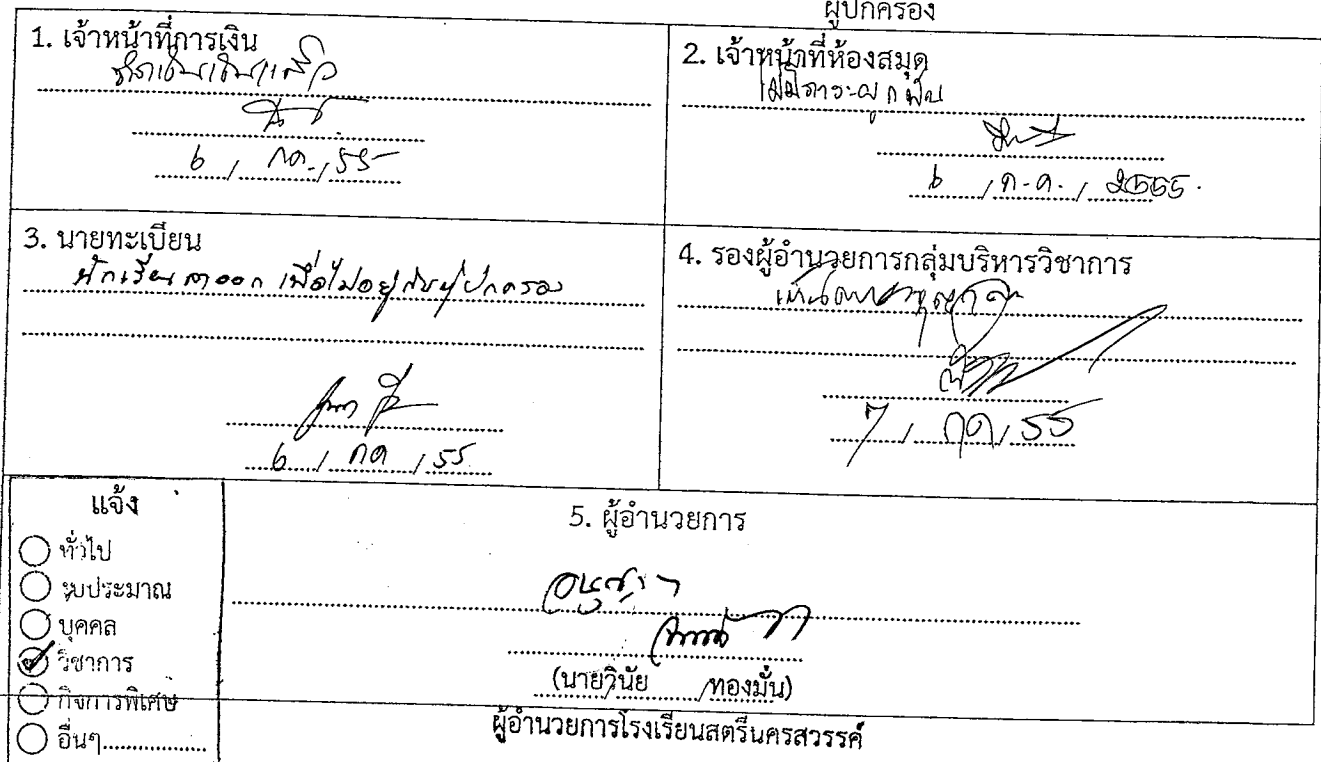 ผู้ปกครอง
1. เจ้าหน้าที่การเงิน
6 / กค. / 55
2. เจ้าหน้าที่ห้องสมุด
ไม่มีภาระผูกพัน
6 / ก.ค. / 2555.
3. นายทะเบียน
นักเรียนลาออก เพื่อไปอยู่กับผู้ปกครอง
6 / กค / 55
4. รองผู้อำนวยการกลุ่มบริหารวิชาการ
เห็นควรอนุญาต
7 / กค / 55
แจ้ง
ทั่วไป
งบประมาณ
บุคคล
วิชาการ
กิจการพิเศษ
อื่นๆ..................
5. ผู้อำนวยการ
อนุญาต
(นายวินัย ทองมั่น)
ผู้อำนวยการโรงเรียนสตรีนครสวรรค์